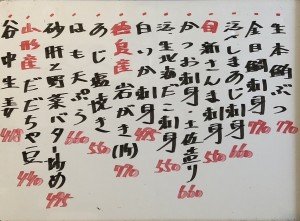 生本鮪ぶつ 770
金目鯛刺身 770
淡じしまあじ刺身 660
目新さんま刺身 550
かつお刺身 土佐造り 660
生北海だこ刺身 550
白りか刺身 495
岩がき(内) 770
あじ塩焼き 550
はも天ぷら 660
砂肝と野菜バター炒め 495
山形産だだちゃ豆 440
谷中生姜 418